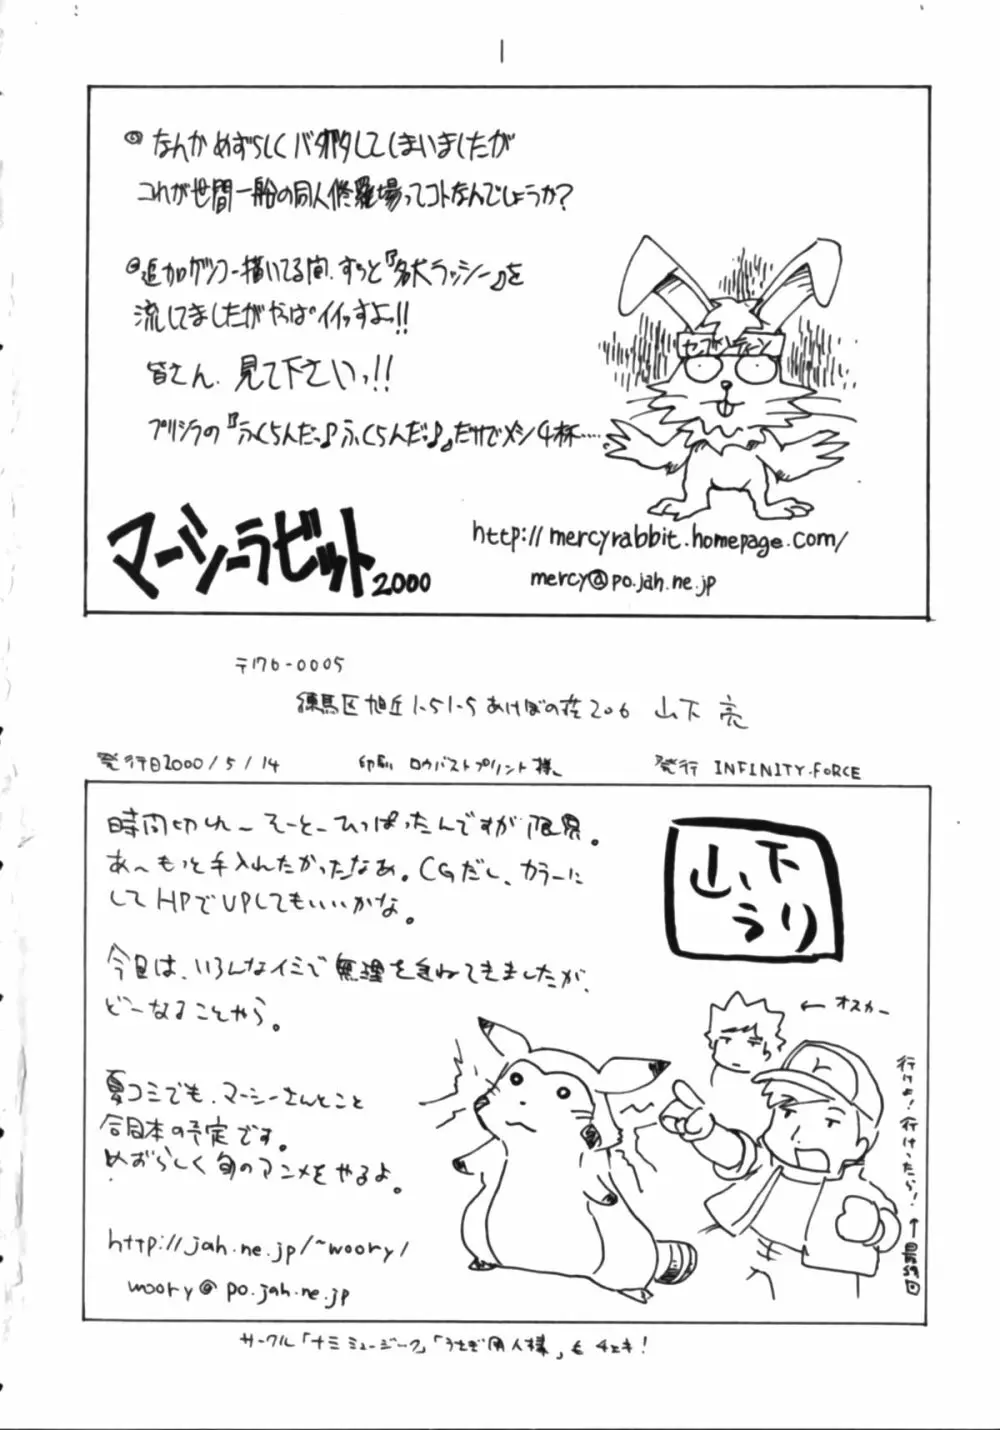 なんかめずらしくバタバタしてしまいましたが
これが世間一般の同人修羅場ってコトなんでしょうか?
追加ゲンコー描いてる間、ずっと『名犬ラッシー』を
流してましたがやっぱイイっすよ!!
皆さん、見て下さいっ!!
プリシラの『ふくらんだっ♪ふくらんだっ♪』だけでメシ4杯‥‥
セブンティーン
マーシーラビット2000
http://mercyrabbit.homepage.com/
mercy@po.jah.ne.jp
〒176-0005
練馬区旭丘1-51-5あけぼの荘206 山下 亮
発行日2000/5/14 印刷 ロウバストプリント様、 発行 INFINITY-FORCE
時間切れ〜 そーとーひっぱったんですが限界。
あ〜もっと手入れたかったなあ。CGだし、カラーに
してHPでUPしてもいいかな。
今回は、いろんなイミで無理を重ねてきましたが、
どーなることやら。
夏コミでも、マーシーさんとこと
合同本の予定です。
めずらしく旬のアニメをやるよ。
http://jah.ne.jp/~woory/
woory@po.jah.ne.jp
山下
うり
←オスカー
行けよ!行けったら!
←最終回
サークル「ナミミュージーク」「うさぎ同人様」も